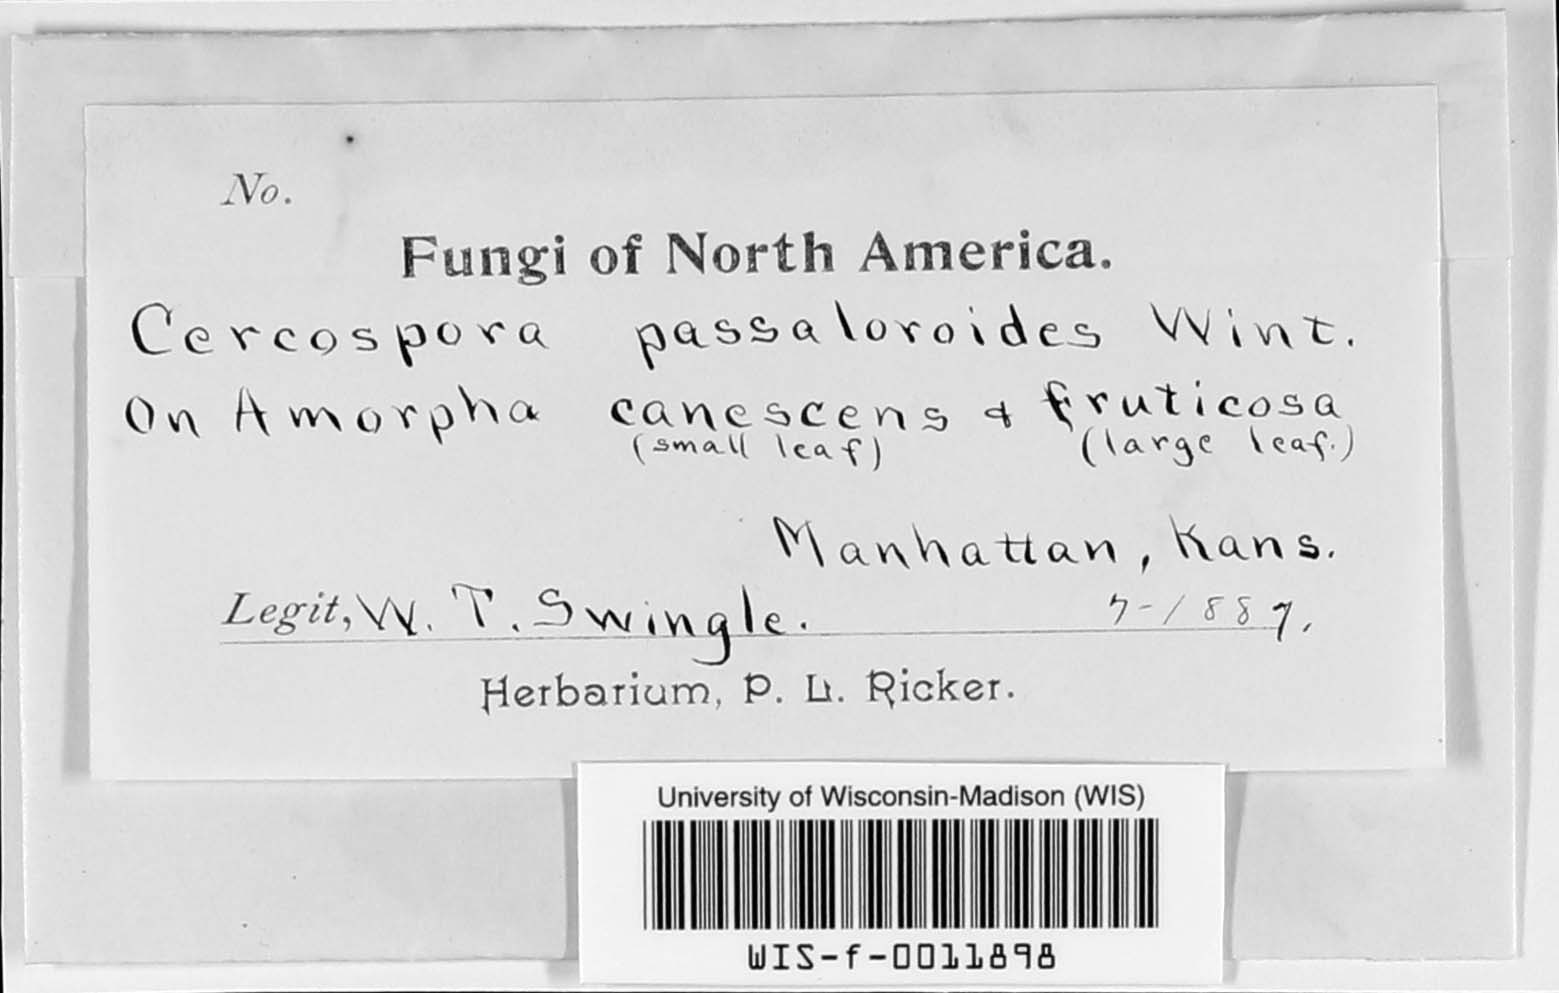 No.
Fungi of North America.
Cercospora passaloroides Wint.
On Amorpha canescens & fruticosa
(small leaf) (large leaf.)
Manhattan, Kans.
Legit, W. T. Swingle. 7-1887.
Herbarium, P. L. Ricker.
University of Wisconsin-Madison (WIS)
WIS-f-0011898